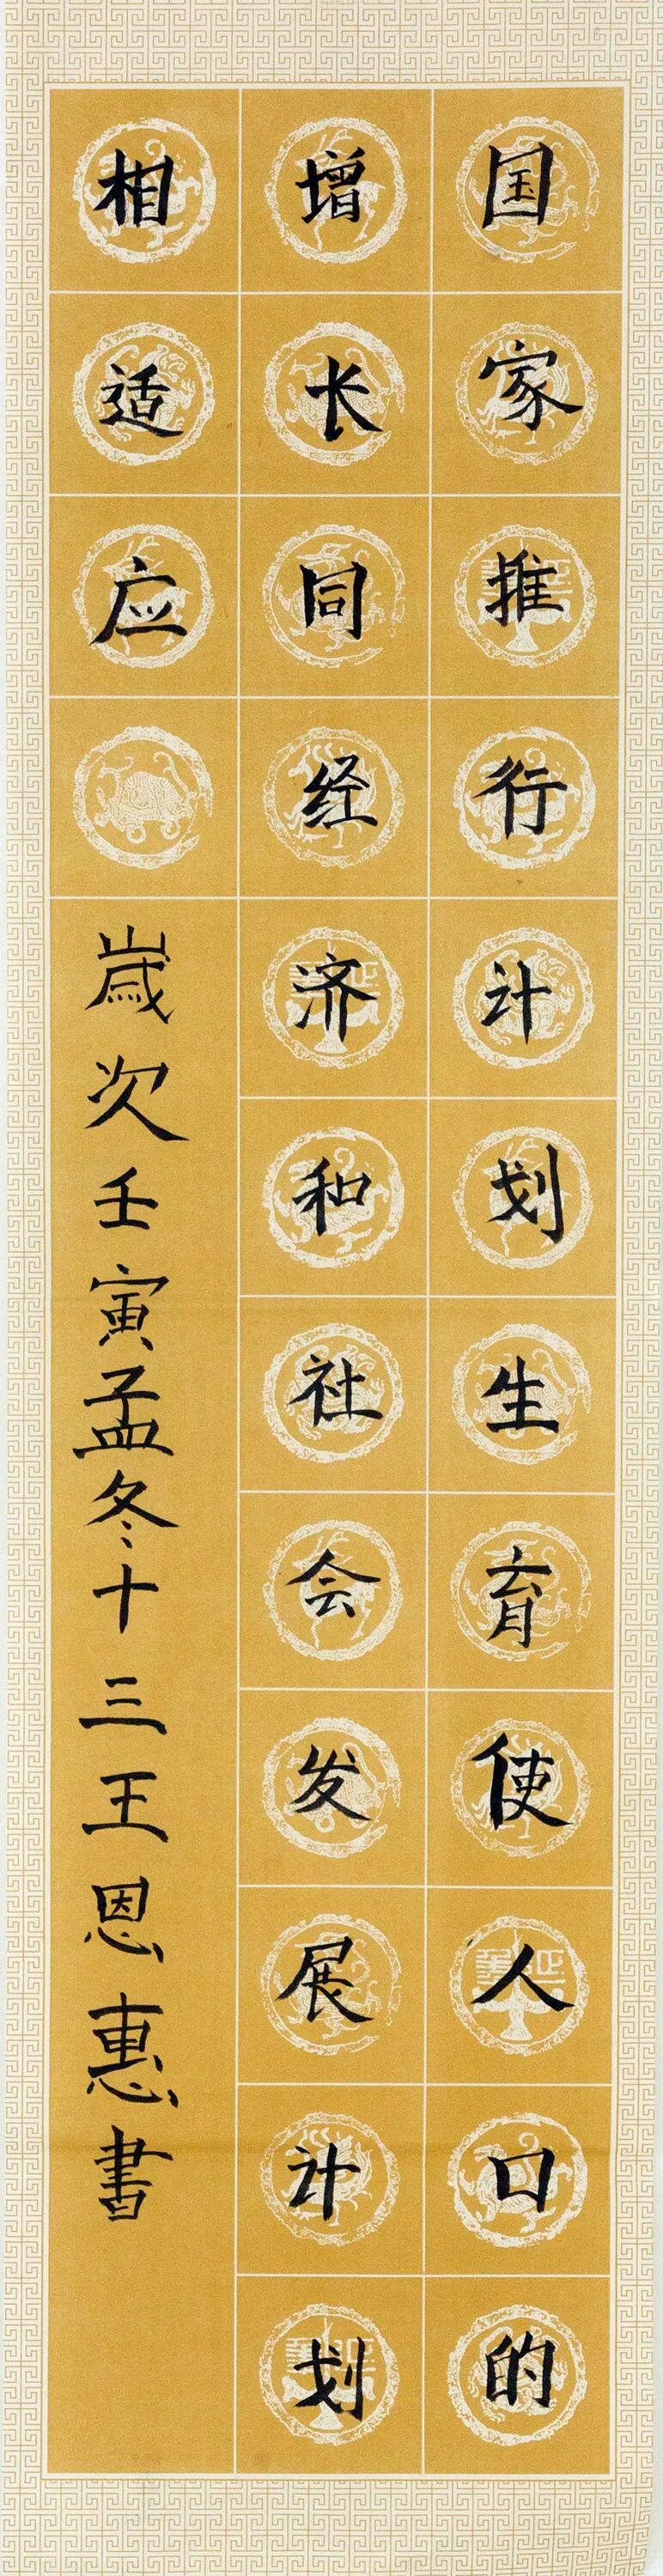 国家推行计划生育使人口的
增长同经济和社会发展计划
相适应
歲次壬寅孟冬十三王恩惠書